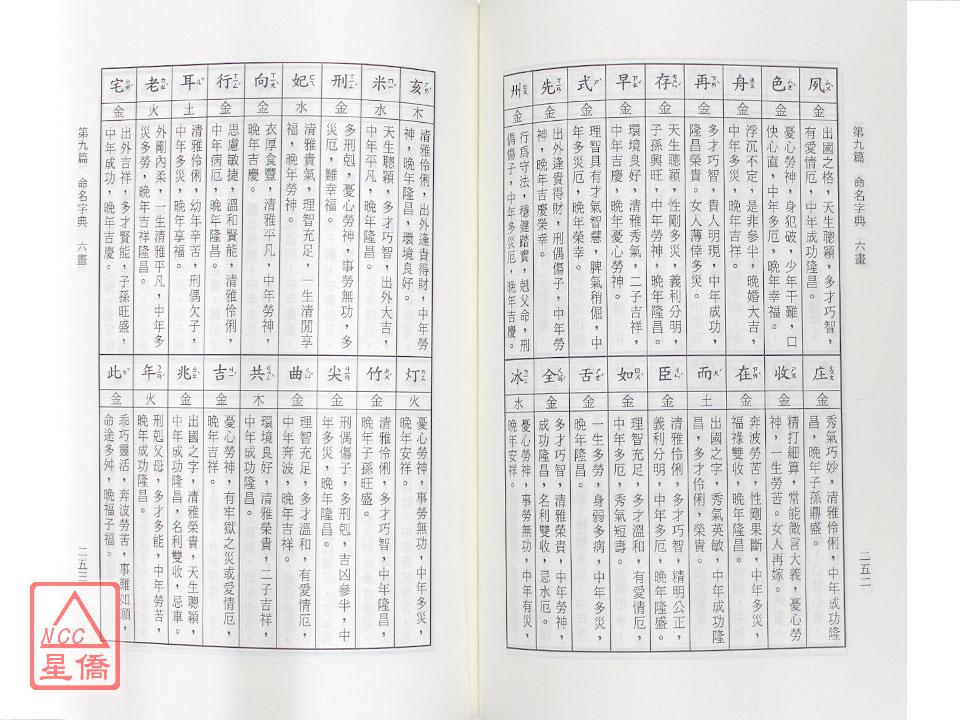 第九篇 命名字典 六畫
二五二
夙
金
出國之格，天生聰穎，多才巧智，
有愛情厄，中年成功隆昌。
色
金
憂心勞神，身犯破，少年干難，口
快心直，中年多厄，晚年幸福。
舟
金
浮沉不定，是非參半，晚婚大吉，
中年多災，晚年吉祥。
再
金
多才巧智，貴人明現，中年成功，
隆昌榮貴。女人薄倖多災。
存
金
天生聰穎，性剛多災，義利分明，
子孫興旺，中年勞神，晚年隆昌。
早
金
環境良好，清雅秀氣，二子吉祥，
中年多災，晚年憂心勞神。
式
金
理智具有才氣智慧，脾氣稍倔，中
年多災厄，晚年榮幸。
先
金
出外逢貴得財，刑偶傷子，中年勞
神，晚年吉慶榮幸。
州
金
行為守法，穩健踏實，剋父命，刑
偶傷子，中年多災厄，晚年吉慶。
庄
金
秀氣巧妙，清雅伶俐，中年成功隆
昌，晚年子孫鼎盛。
收
金
精打細算，常能微言大義，憂心勞
神，一生勞苦。女人再嫁。
在
金
奔波勞苦，性剛果斷，中年多災，
福祿雙收，晚年隆昌。
而
土
出國之字，秀氣英敏，中年成功隆
昌，多才伶俐，榮貴。
臣
金
清雅伶俐，多才巧智，精明公正，
義利分明，中年多厄，晚年隆盛。
如
金
理智充足，多才溫和，有愛情厄，
中年多厄，秀氣短壽。
舌
金
一生多勞，身弱多病，中年多災，
晚年吉祥。
全
金
多才巧智，清雅榮貴，中年勞神，
成功隆昌，名利雙收，忌水厄。
冰
水
憂心勞神，事勞無功，中年有災，
晚年安祥。
亥
木
清雅伶俐，出外逢貴得財，中年勞
神，晚年隆昌，環境良好。
米
水
天生聰穎，多才巧智，出外大吉，
中年平凡，晚年隆昌。
刑
金
多刑剋，憂心勞神，事勞無功，多
災厄，難幸福。
妃
水
清雅貴氣，理智充足，一生清閒享
福，晚年勞神。
向
金
衣厚食豐，清雅平凡，中年勞神，
晚年吉慶。
行
金
思慮敏捷，溫和賢能，清雅伶俐，
中年病厄，晚年隆昌。
耳
土
清雅伶俐，幼年辛苦，刑偶欠子，
中年多災，晚年享福。
老
火
外剛內柔，一生清雅平凡，中年多
災多勞，晚年吉祥隆昌。
宅
金
出外吉祥，多才賢能，子孫旺盛，
中年成功，晚年吉慶。
灯
火
憂心勞神，事勞無功，中年多災，
晚年安祥。
竹
金
清雅伶俐，多才巧智，中年隆昌，
晚年子孫旺盛。
尖
金
刑偶傷子，多刑剋，吉凶參半，中
年多災，晚年隆昌。
曲
金
理智充足，多才溫和，有愛情厄，
中年奔波，晚年吉祥。
共
木
環境良好，清雅榮貴，二子吉祥，
吉
金
憂心勞神，有牢獄之災或愛情厄，
晚年吉祥。
兆
金
出國之字，清雅榮貴，天生聰穎，
中年成功隆昌，名利雙收，忌車。
年
火
刑剋父母，多才多能，中年勞苦，
晚年成功隆昌。
此
金
乖巧靈活，奔波勞苦，事難如願，
命途多舛，晚福子福。
第九篇 命名字典 六畫
二五三
NCC
星僑